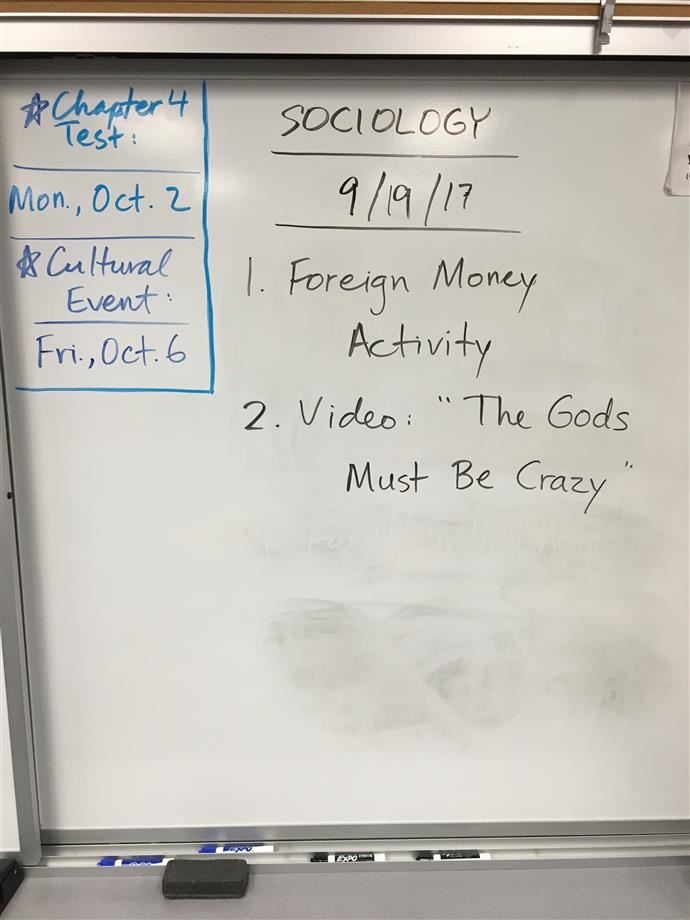 ☆Chapter 4
Test:
Mon., Oct. 2
☆Cultural
Event:
Fri., Oct. 6
SOCIOLOGY
9/19/17
1. Foreign Money
Activity
2. Video: "The Gods
Must Be Crazy"
EXPO
EXPO